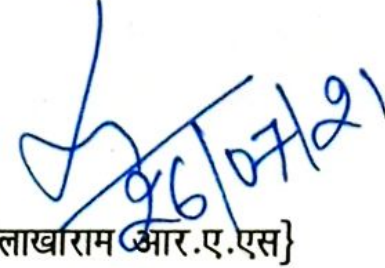 26/07/21
लाखाराम आर.ए.एस}